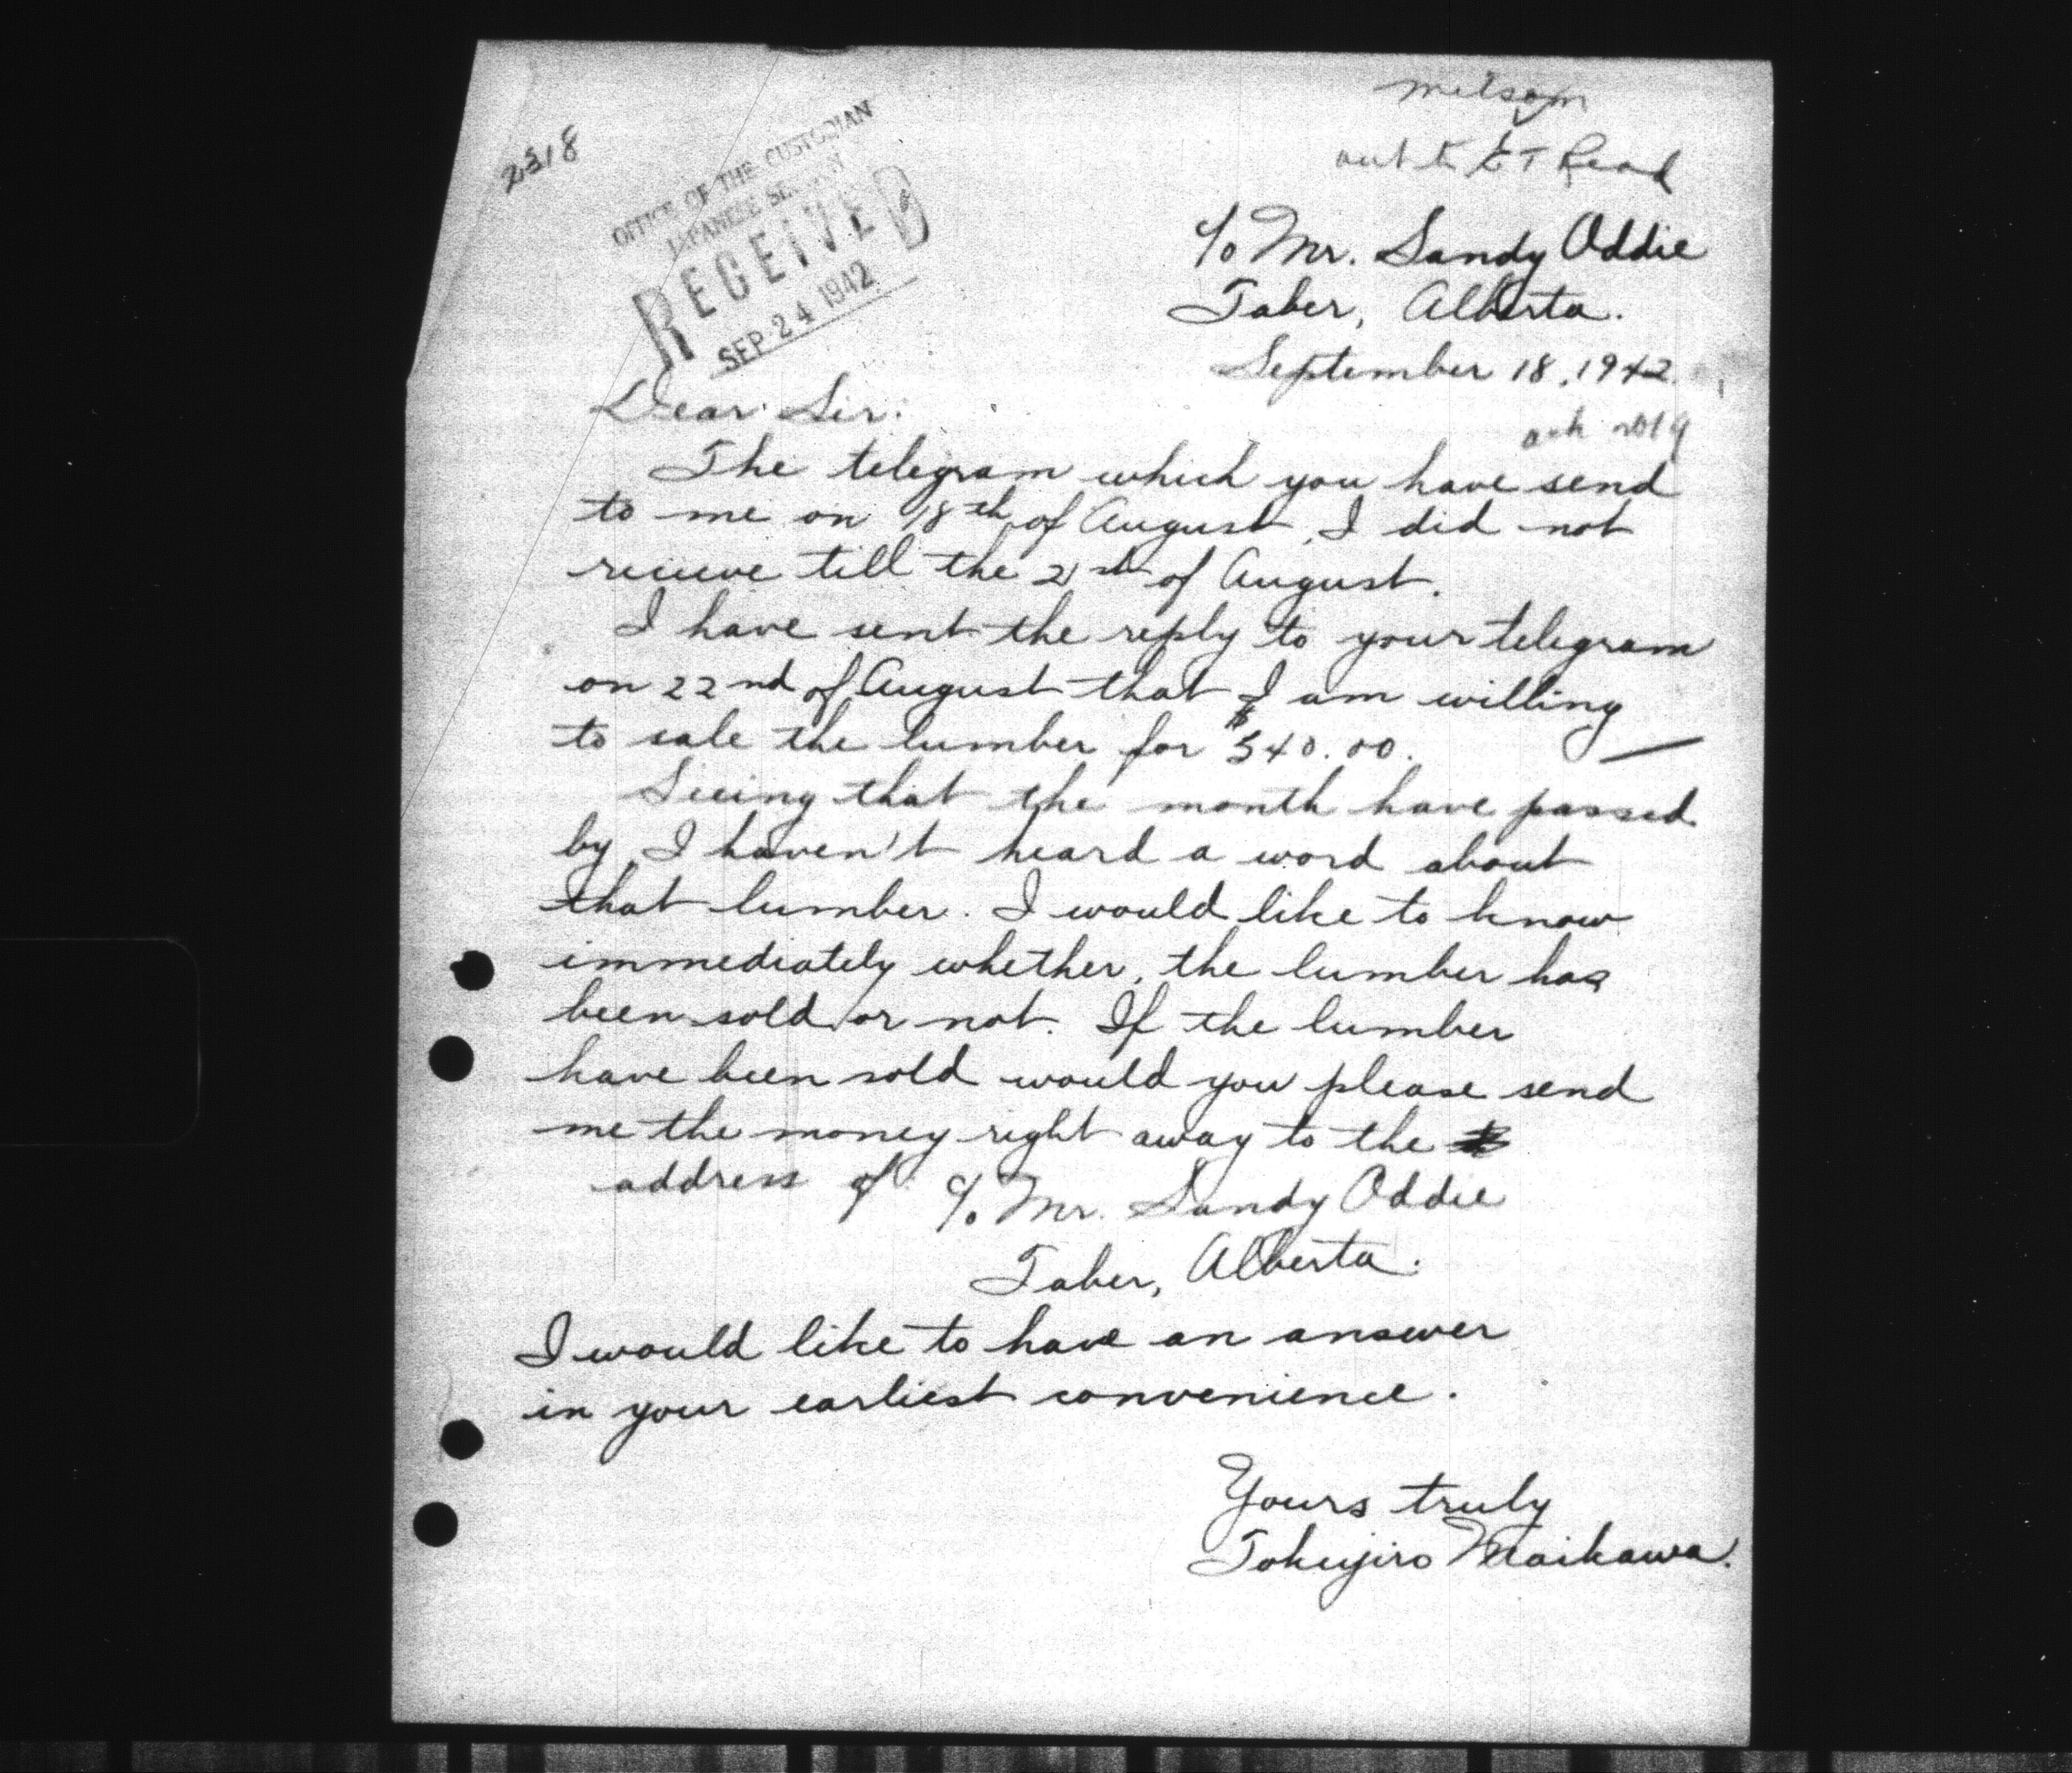 2318
OFFICE OF THE CUSTODIAN
JAPANESE SECTION
RECEIVED
SEP 24 1942
out to E T Read
c/o Mr. Sandy Oddie
Taber, Alberta.
September 18, 1942.
Dear Sir:
The telegram which you have send
to me on 18th of August, I did not
recieve till the 21st of August.
I have sent the reply to your telegram
on 22nd of August that I am willing
to sale the lumber for $340.00.
Seeing that the month have passed
by, I haven't heard a word about
that lumber. I would like to know
immediately whether, the lumber has
been sold or not. If the lumber
have been sold would you please send
me the money right away to the
address of c/o Mr. Sandy Oddie
Taber, Alberta.
I would like to have an answer
in your earliest convenience.
Yours truly
Tokujiro Maikawa.